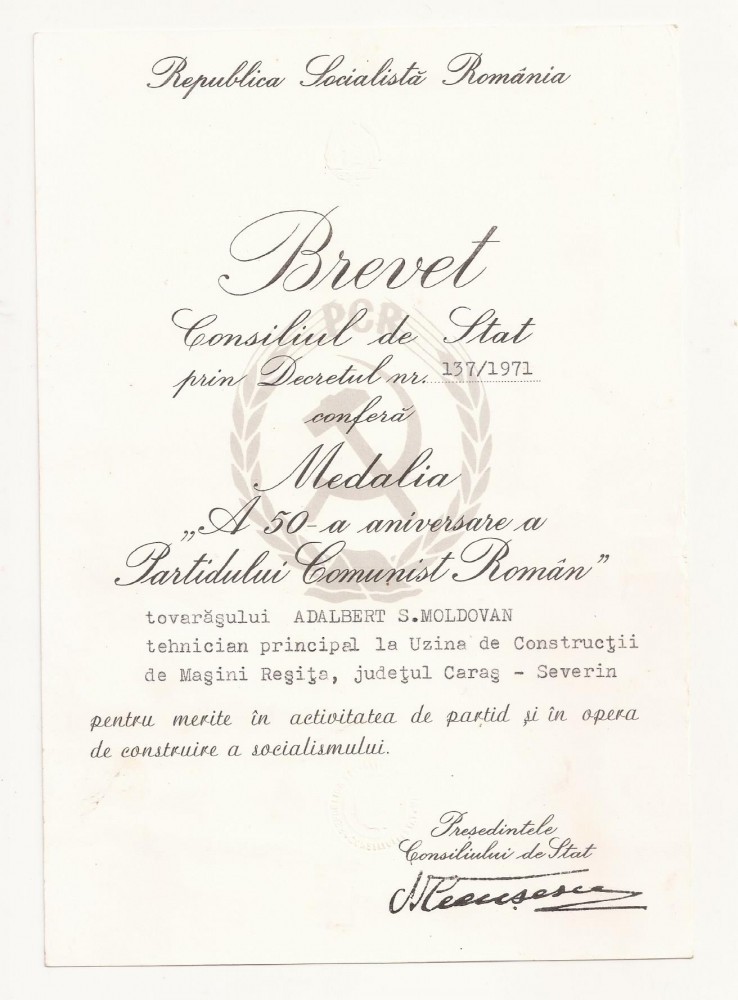 Republica Socialistă România
Brevet
PCR
Consiliul de Stat
prin Decretul nr. 137/1971
conferă
Medalia
„A 50-a aniversare a
Partidului Comunist Român”
tovarăşului ADALBERT S.MOLDOVAN
tehnician principal la Uzina de Construcţii
de Maşini Reşiţa, judeţul Caraş - Severin
pentru merite în activitatea de partid şi în opera
de construire a socialismului.
Preşedintele
Consiliului de Stat
NCeauşescu